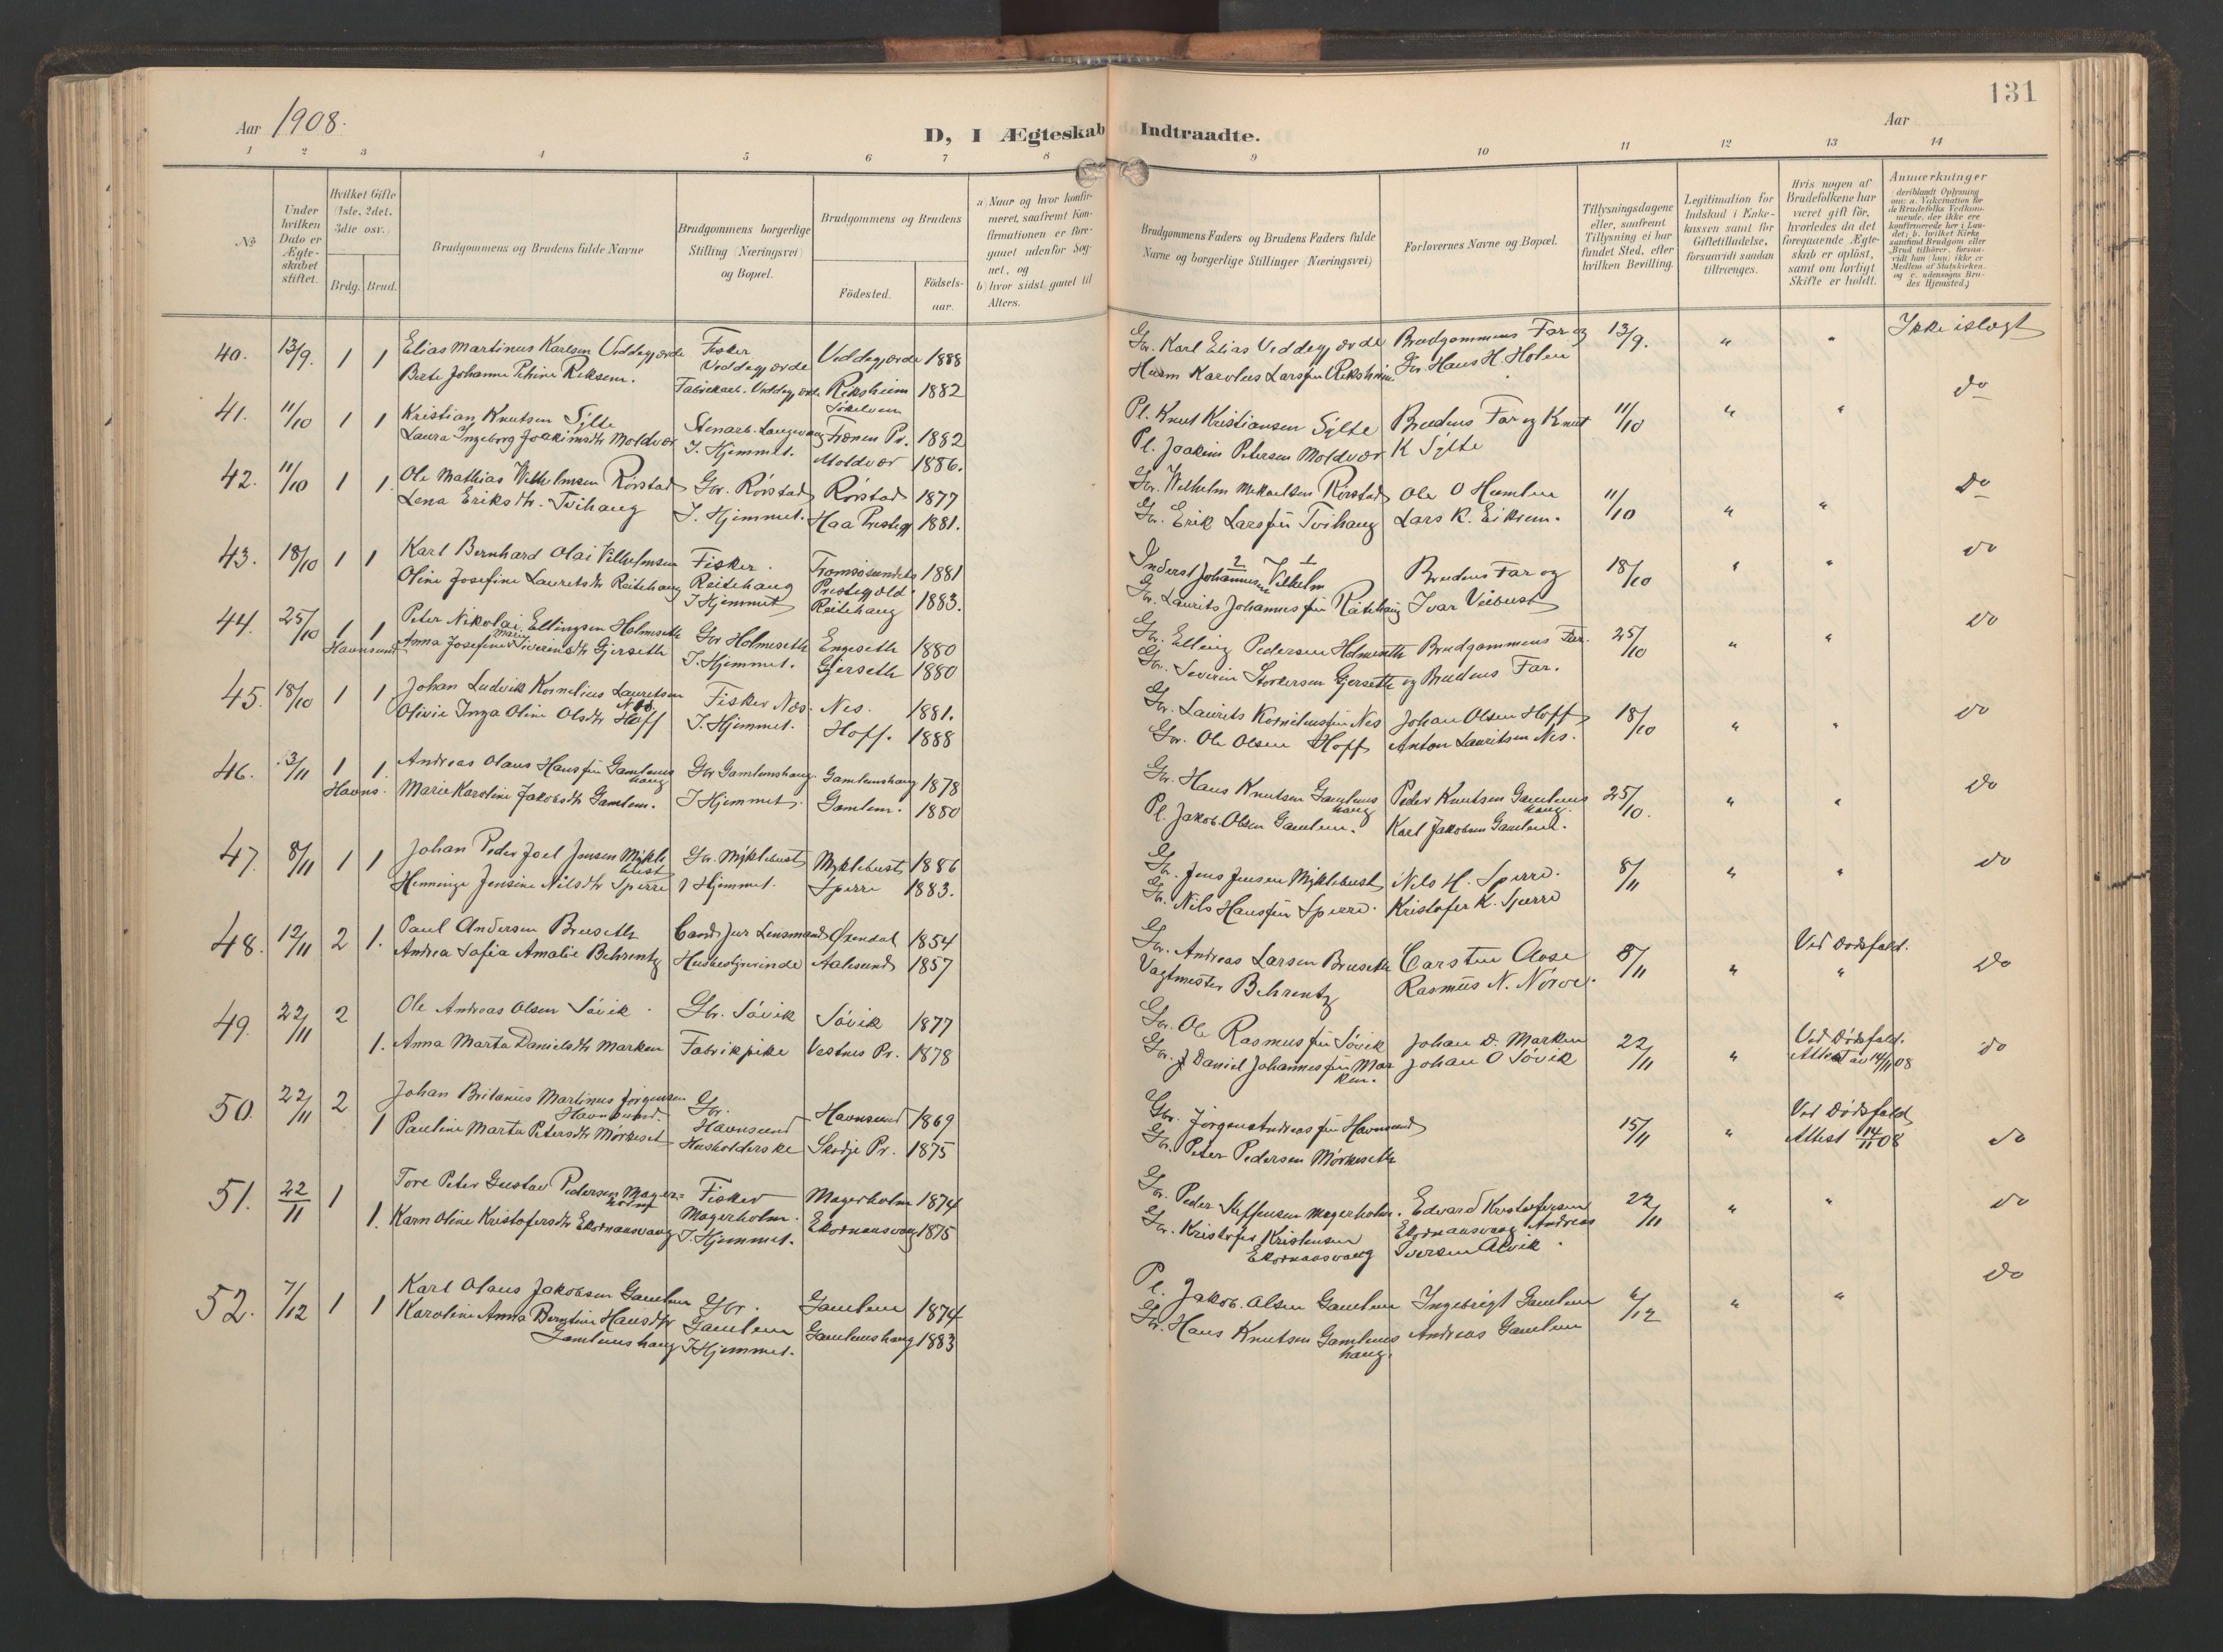 131
Aar 1908.
D, I Ægteskab Indtraadte.
Aar
1 2 3 4 5 6 7 8 9 10 11 12 13 14
No
Under hvilken Dato er Ægteskabet stiftet.
Hvilket Gifte (1ste, 2det, 3die osv.)
Brdg. Brud.
Brudgommens og Brudens fulde Navne
Brudgommens borgerlige Stilling (Næringsvei) og Bopæl.
Brudgommens og Brudens
Födested.
Födselsaar.
a) Naar og hvor konfirmeret, saafremt Konfirmationen er foregaaet udenfor Sognet, og
b) hvor sidst gaaet til Alters.
Brudgommens Faders og Brudens Faders fulde Navne og borgerlige Stillinger (Næringsvei)
Forlovernes Navne og Bopæl.
Tillysningsdagene eller, saafremt Tillysning ei har fundet Sted, efter hvilken Bevilling.
Legitimation for Indskud i Enkekassen samt for Giftetilladelse, forsaavidt saadan tiltrænges.
Hvis nogen af Brudefolkene har været gift för, hvorledes da det foregaaende Ægteskab er oplöst, samt om lovligt Skifte er holdt.
Anmærkninger
(deriblandt Oplysning om: a. Vakcination for de Brudefolks Vedkommende, der ikke ere konfirmerede her i Landet; b. hvilket Kirkesamfund Brudgom eller Brud tilhörer, forsaavidt han (hun) ikke er Medlem af Statskirken, og c. udensogns Brudes Hjemsted.)
40. 13/9. 1 1 Elias Martinus Karlsen Veddegjærde Fisker Veddegjærde Veddegjærde 1888 Gbr. Karl Elias Veddegjærde Brudgommens Far og 13/9. " " Ikke islægt
Berte Johanne Petrine Reksem. Fabrikarb. Veddegjærde Reksheim Sökelven 1882 Husm Karolus Larsen Reksheim Gbr. Hans H. Holen
41. 11/10 1 1 Kristian Knutsen Sylte Stenarb. Langevaag Frænen Pr. 1882 Pl. Knut Kristiansen Sylte Brudens Far og Knut 11/10 " " do
Laura Ingeborg Joakimsdtr Moldvær I. Hjemmet. Moldvær 1886. Pl. Joakim Petersen Moldvær K Sylte
42. 11/10 1 1. Ole Mathias Vilhelmsen Rörstad Gbr. Rörstad Rörstad 1877 Gbr. Wilhelm Mikaelsen Rörstad Ole O Humlen 11/10 " " Do
Lena Eriksdtr. Tvihaug I. Hjemmet. Haa Prestegj 1881. Gbr. Erik Larsen Tvihaug Lars K. Eikrem.
43. 18/10 1 1 Karl Bernhard Olai Vilhelmsen Fisker. Tromsösundets Prestegjeld 1881 Inderst Johannesen 2 Vilhelm 1 Brudens Far og 18/10 " " do
Oline Josefine Lauritsdtr Reitehaug Reitehaug I Hjemmet Reitehaug 1883. Gbr. Laurits Johannessen Reitehaug Ivar Veibust
44. 25/10 1 1 Peter Nikolai Ellingsen Holmeseth Gbr Holmeseth Engeseth 1880 Gbr. Elling Pedersen Holmeseth Brudgommens Far. 25/10 " " do
Havnsund Anna Josefine Marie Siverinsdtr Gjerseth I. Hjemmet. Gjerseth 1880 Gbr. Severin Storkersen Gjerseth og Brudens Far.
45. 18/10 1 1 Johan Ludvik Kornelius Lauritsen Nes. Fisker Nes. Nes. 1881. Gbr. Laurits Korneliussen Nes Johan Olsen Hoff 18/10 " " do
Olivie Inga Oline Olsdtr Hoff I. Hjemmet. Hoff. 1888 Gbr. Ole Olsen Hoff Anton Lauritsen Nes.
46. 3/11 1 1. Andreas Olaus Hanssen Gamlemshaug Gbr Gamlemshaug. Gamlemshaug 1878 Gbr. Hans Knutsen Gamlemshaug Peder Knutsen Gamlemshaug. 25/10. " " do
Havns. Marie Karoline Jakobsdtr Gamlem. I Hjemmet. Gamlem. 1880 Pl. Jakob Olsen Gamlem. Karl Jakobsen Gamlem.
47. 8/11 1 1 Johan Peder Joel Jensen Myklebust Gbr. Myklebust Myklebust 1886 Gbr. Jens Jensen Myklebust Nils H. Sperre. 8/11 " " do
Henninge Jensine Nilsdtr Sperre I Hjemmet. Sperre 1883. Gbr. Nils Hanssen Sperre. Kristofer K. Sperre
48. 12/11 2 1. Paul Andersen Bruseth Cand. jur Lensmand Öxendal 1854 Gbr. Andreas Larsen Bruseth Carsten Aose 8/11 " Ved Dødsfald. Do
Andrea Sofia Amalie Behrentz Husbestyrerinde Aalesund 1857 Vagtmester Behrentz Rasmus N. Nörve. "
49. 22/11 2 Ole Andreas Olsen Sövik. Gbr. Sövik Sövik 1877 Gbr. Ole Rasmussen Sövik Johan D. Marken 22/11 " Ved Dødsfald. do
1. Anna Marta Danielsdtr Marken Fabrikpike Vestnes Pr. 1878 Gbr. J Daniel Johannessen Marken. Johan O Sövik Attest av 14/11 08
50. 22/11 2 Johan Britanus Martinus Jörgensen Havnsund Gbr. Havnsund Havnsund 1869 Gbr. Jörgen Andreassen Havnsund 15/11 " Ved Dødsfald
1 Pauline Marta Petersdtr Mörkeset Husholderske Skodje Pr. 1875 Gbr. Peter Pedersen Mörkeseth Attest 14/11 08 do
51. 22/11 1 Tore Peter Gustav Pedersen Magerholm Fisker Magerholm. Magerholm 1874 Gbr. Peder Steffensen Magerholm. Edvard Kristofersen 22/11 " " do
1. Karn Oline Kristofersdtr Ekornaasvaag I. Hjemmet. Ekornaasvaag 1875 Gbr. Kristofer Kristensen Ekornaasvaag Ekornaasvaag Andreas Iversen Alvik.
52. 7/12 1 1 Karl Olaus Jakobsen Gamlem Gbr. Gamlem Gamlem 1874 Pl. Jakob. Olsen Gamlem Ingebrigt Gamlem 6/12 " " do
Karoline Anna Berntine Hansdtr Gamlemshaug I Hjemmet. Gamlemshaug 1883 Gbr. Hans Knutsen Gamlemshaug. Andreas Gamlem